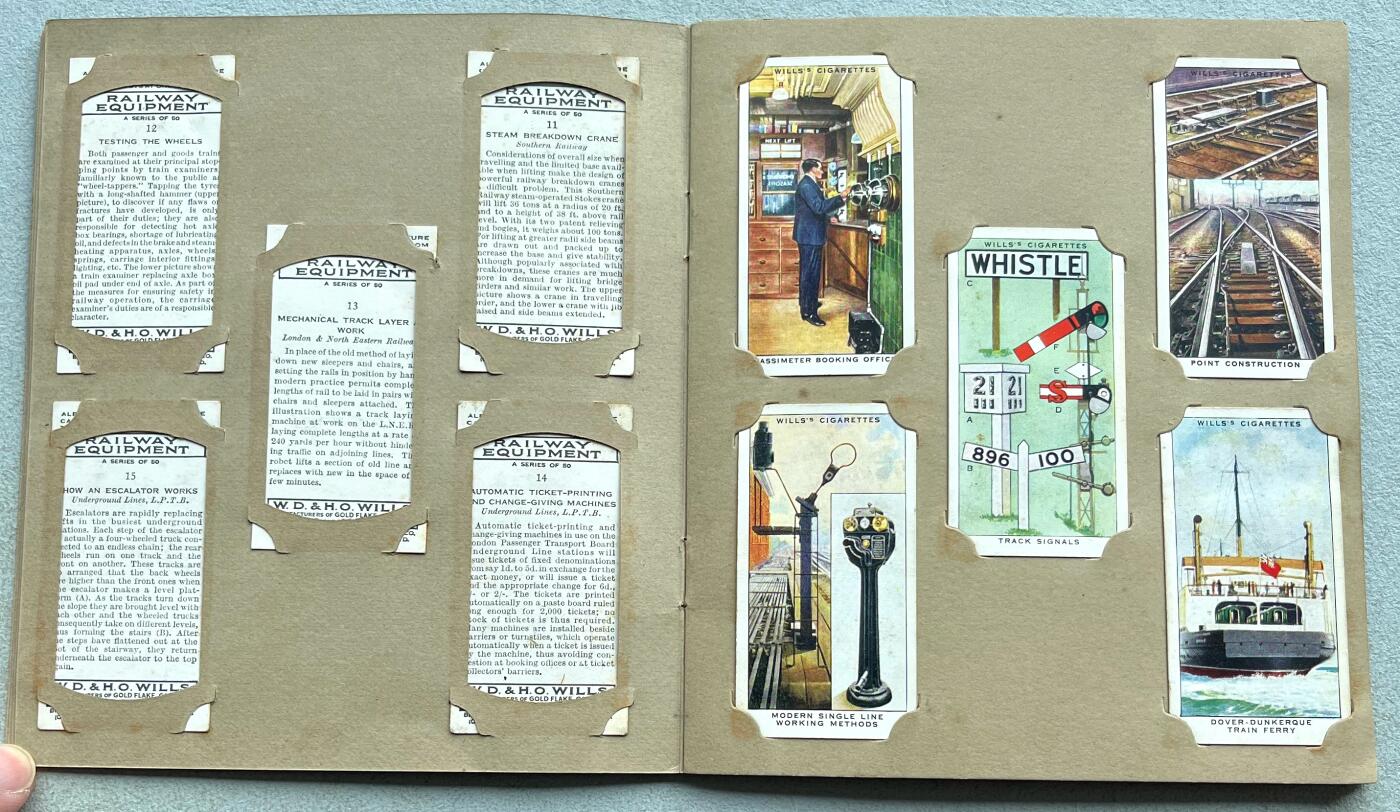 RAILWAY
EQUIPMENT
A SERIES OF 50
12
TESTING THE WHEELS
Both passenger and goods trains
are examined at their principal stop-
ping points by train examiners,
familiarly known to the public as
"wheel-tappers." Tapping the tyre
with a long-shafted hammer (upper
picture), to discover if any flaws or
fractures have developed, is only
part of their duties; they are also
responsible for detecting hot axle
box bearings, shortage of lubricating
oil, and defects in the brake and steam
heating apparatus, axles, wheels,
springs, carriage interior fittings,
lighting, etc. The lower picture shows
a train examiner replacing axle box
oil pad under end of axle. As part of
the measures for ensuring safety in
railway operation, the carriage
examiner's duties are of a responsible
character.
W. D. & H. O. WILLS
RAILWAY
EQUIPMENT
A SERIES OF 50
11
STEAM BREAKDOWN CRANE
Southern Railway
Considerations of overall size when
travelling and the limited base avail-
able when lifting make the design of
powerful railway breakdown cranes
difficult problem. This Southern
Railway steam-operated Stokes crane
will lift 36 tons at a radius of 20 ft.
and to a height of 38 ft. above rail
level. With its two patent relieving
and bogies, it weighs about 100 tons.
For lifting at greater radii side beams
are drawn out and packed up to
increase the base and give stability.
Although popularly associated with
breakdowns, these cranes are much
more in demand for lifting bridge
girders and similar work. The upper
picture shows a crane in travelling
order, and the lower a crane with jib
raised and side beams extended.
W. D. & H. O. WILLS
RAILWAY
EQUIPMENT
A SERIES OF 50
13
MECHANICAL TRACK LAYER
WORK
London & North Eastern Railwa
In place of the old method of layi
down new sleepers and chairs, a
setting the rails in position by han
modern practice permits comple
lengths of rail to be laid in pairs wi
chairs and sleepers attached. T
illustration shows a track layin
machine at work on the L.N.E.R
laying complete lengths at a rate
240 yards per hour without hinde
ing traffic on adjoining lines. T
robot lifts a section of old line an
replaces with new in the space of
few minutes.
W. D. & H. O. WILLS
RAILWAY
EQUIPMENT
A SERIES OF 50
15
HOW AN ESCALATOR WORKS
Underground Lines, L.P.T.B.
Escalators are rapidly replacing
fts in the busiest underground
ations. Each step of the escalator
actually a four-wheeled truck con-
ected to an endless chain; the rear
heels run on one track and the
ont on another. These tracks are
o arranged that the back wheels
re higher than the front ones when
he escalator makes a level plat-
orm (A). As the tracks turn down
he slope they are brought level with
ach other and the wheeled trucks
onsequently take on different levels,
hus forming the stairs (B). After
he steps have flattened out at the
oot of the stairway, they return
nderneath the escalator to the top
gain.
W. D. & H. O. WILLS
RAILWAY
EQUIPMENT
A SERIES OF 50
14
AUTOMATIC TICKET-PRINTING
AND CHANGE-GIVING MACHINES
Underground Lines, L.P.T.B.
Automatic ticket-printing and
hange-giving machines in use on the
ondon Passenger Transport Board
nderground Line stations will
sue tickets of fixed denominations
rom say 1d. to 5d. in exchange for the
xact money, or will issue a ticket
nd the appropriate change for 6d.,
/- or 2/-. The tickets are printed
utomatically on a paste board ruled
ong enough for 2,000 tickets; no
tock of tickets is thus required.
Many machines are installed beside
arriers or turnstiles, which operate
utomatically when a ticket is issued
y the machine, thus avoiding con-
estion at booking offices or at ticket
ollectors' barriers.
W. D. & H. O. WILLS
WILLS'S CIGARETTES
NEXT LIFT
ASSIMETER BOOKING OFFIC
WILLS'S CIGARETTES
POINT CONSTRUCTION
WILLS'S CIGARETTES
WHISTLE
C
F
E
S
D
21 21
A
B
896 100
TRACK SIGNALS
WILLS'S CIGARETTES
MODERN SINGLE LINE
WORKING METHODS
WILLS'S CIGARETTES
DOVER-DUNKERQUE
TRAIN FERRY